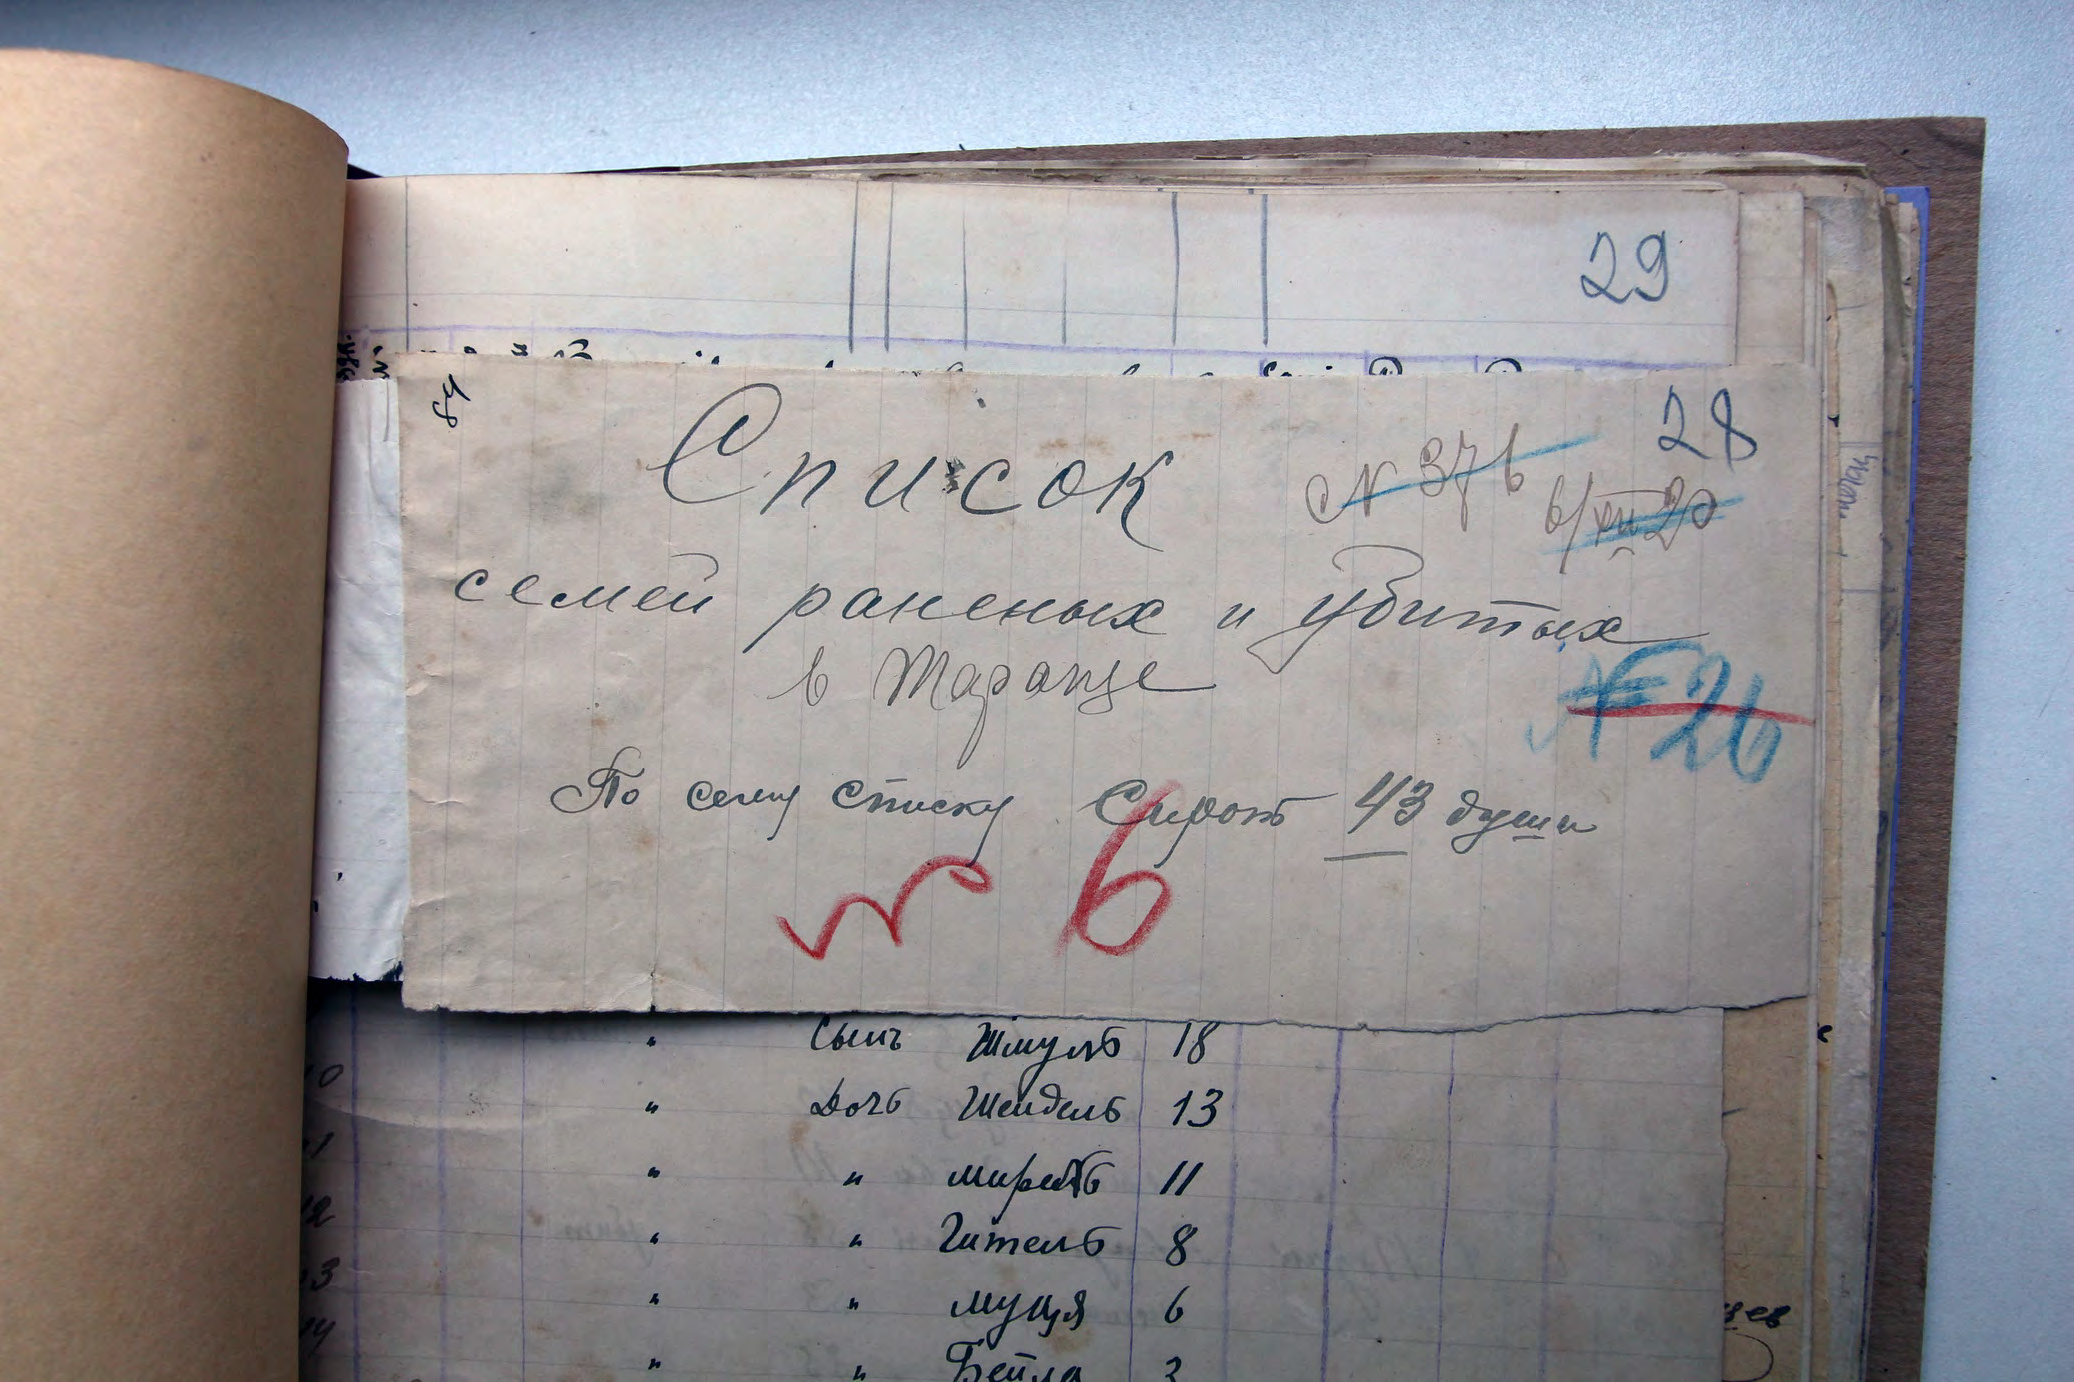 29
28
Список
№ 376
6/XII 20
семей раненых и убитых
в Тараще
№ 26
По сему списку Сирот 43 души
№ 6
" Сынъ Шмуль 18
" Дочь Шейдель 13
" " 11
" " Гитель 8
" " Муця 6
" " Бейла 3